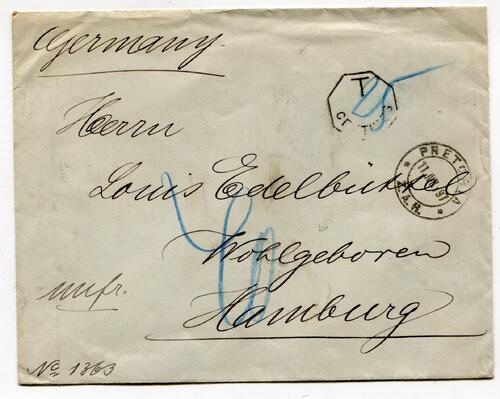 Germany.
T
25
CENTIMES
Herrn
PRETORIA
11 JUN 97
Z.A.R.
Louis Edelbüttel
Wohlgeboren
40
unfr.
Hamburg
No 1363